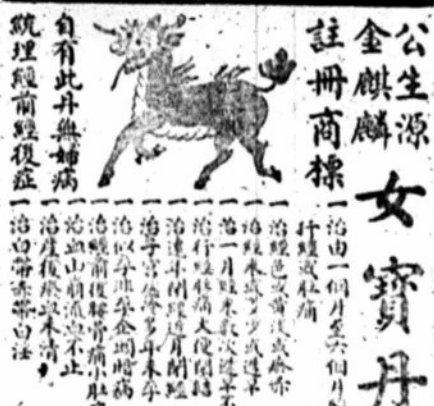 公生源
金麒麟
註冊商標
女寶丹
自有此丹無婦病
統理經前經後症
一治由一個月至六個月
行經或肚痛
一治經色或黃淡或瘀赤
一治經來或多或少或遲早
一治一月經來數次遲早不
一治行經肚痛大便閉結
一治連年閉經逐月閉經
一治子宮虛冷多年未孕
一治以孕非孕
一治經前後腰骨痛小肚
一治血山崩流血不止
一治產後瘀血未清
一治白帶赤帶白淫